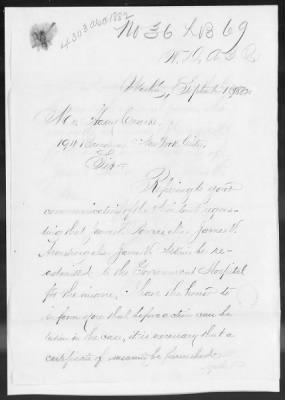 4303 ACP 1882
No 36 L B 69
W. D. A. G. O.
Washn, September 1882
Mr. Henry
1941 Broadway, New York City,
Sir:
Referring to your
communication of the inst. reques-
ting that James W.
James W. be re-
admitted to the Government Hospital
for the insane, I have the honor to
inform you that before action can be
taken in the case, it is necessary that a
certificate of insanity be furnished